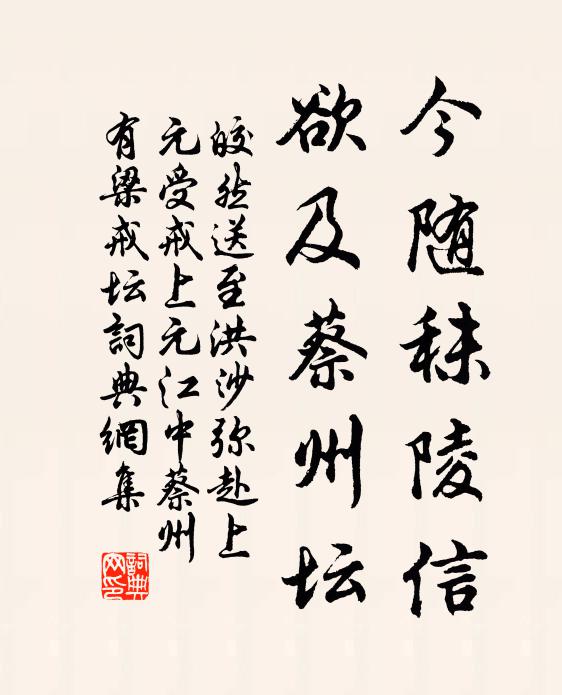 今随秣陵信
欲及蔡州坛
皎然送至洪沙弥赴上
元受戒上元江中蔡州
有梁戒坛詞典網集
詞典
网印